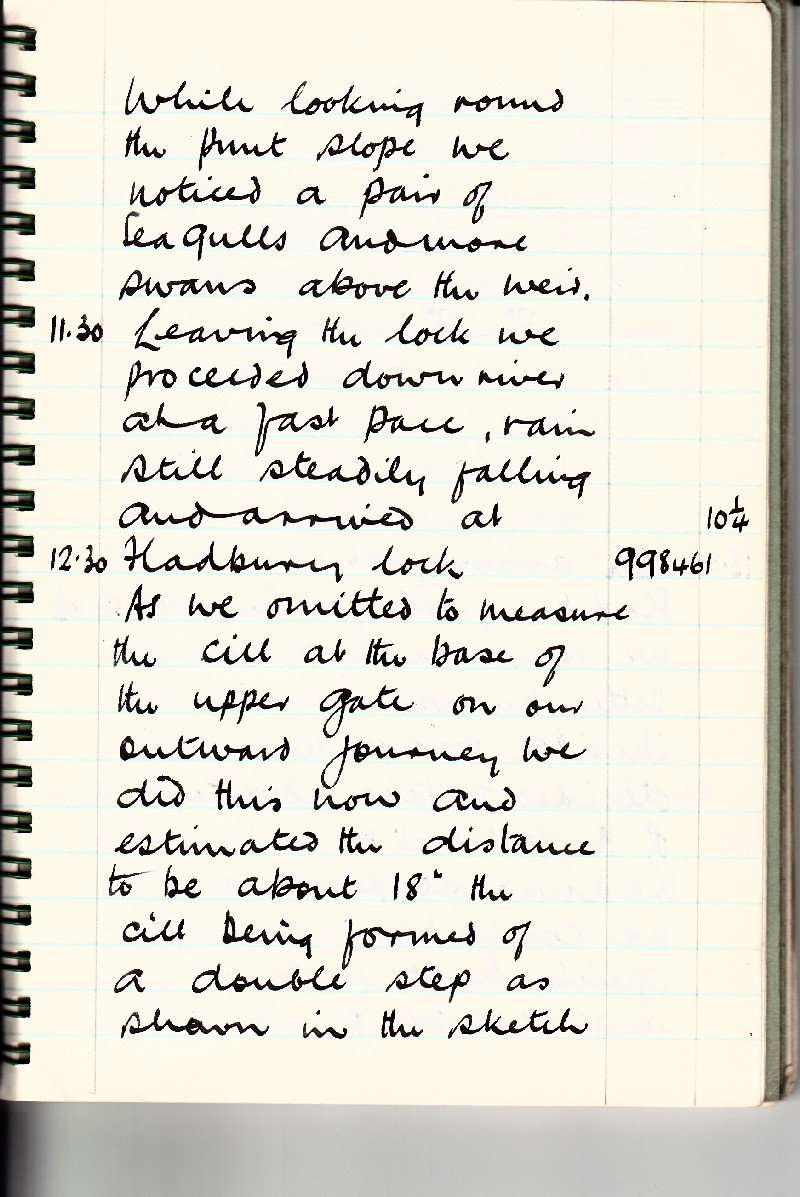 While looking round
the punt slope we
noticed a pair of
Seagulls and more
swans above the weir.
11.30 Leaving the lock we
proceeded down river
at a fast pace, rain
still steadily falling
and arrived at 10¼
12.30 Hadbury lock 998461
As we omitted to measure
the cill at the base of
the upper gate on our
outward journey we
did this now and
estimated the distance
to be about 18" the
cill being formed of
a double step as
shown in the sketch